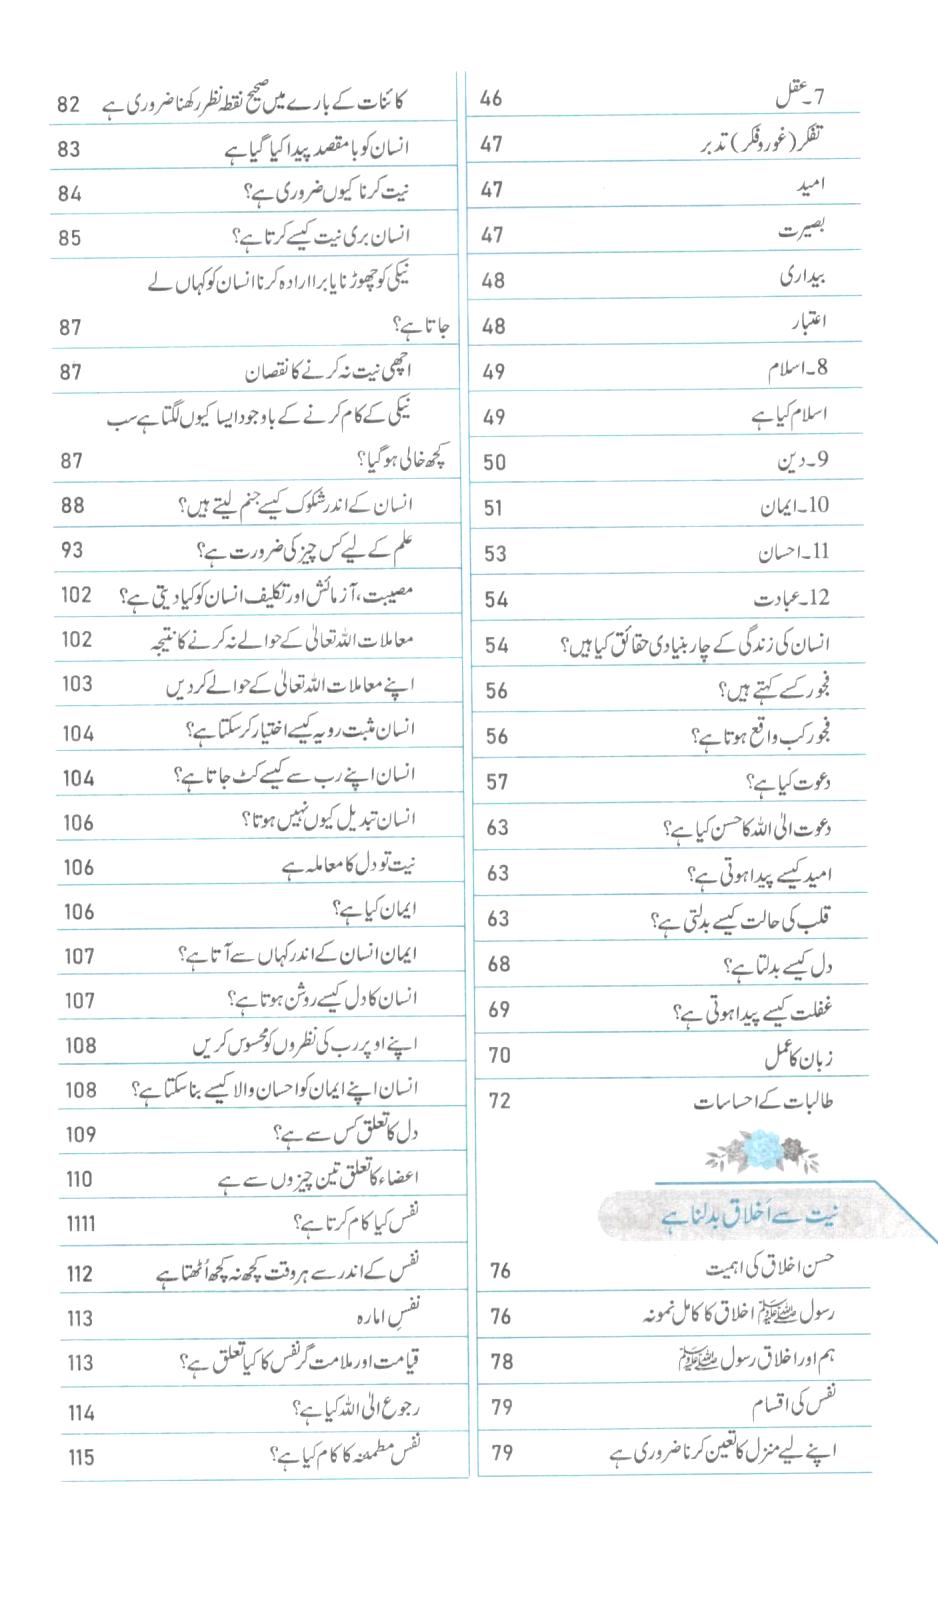 7۔عقل 46
تفکر (غوروفکر) تدبر 47
امید 47
بصیرت 47
بیداری 48
اعتبار 48
8۔اسلام 49
اسلام کیا ہے 49
9۔دین 50
10۔ایمان 51
11۔احسان 53
12۔عبادت 54
انسان کی زندگی کے چار بنیادی حقائق کیا ہیں؟ 54
فجور کسے کہتے ہیں؟ 56
فجور کب واقع ہوتا ہے؟ 56
دعوت کیا ہے؟ 57
دعوت الی اللہ کا حسن کیا ہے؟ 63
امید کیسے پیدا ہوتی ہے؟ 63
قلب کی حالت کیسے بدلتی ہے؟ 63
دل کیسے بدلتا ہے؟ 68
غفلت کیسے پیدا ہوتی ہے؟ 69
زبان کا عمل 70
طالبات کے احساسات 72
نیت سے اَخلاق بدلنا ہے
حسن اخلاق کی اہمیت 76
رسول ﷺ اخلاق کا کامل نمونہ 76
ہم اور اخلاق رسول ﷺ 78
نفس کی اقسام 79
اپنے لیے منزل کا تعین کرنا ضروری ہے 79
کائنات کے بارے میں صحیح نقطۂ نظر رکھنا ضروری ہے 82
انسان کو با مقصد پیدا کیا گیا ہے 83
نیت کرنا کیوں ضروری ہے؟ 84
انسان بری نیت کیسے کرتا ہے؟ 85
نیکی کو چھوڑنا یا برا ارادہ کرنا انسان کو کہاں لے
جاتا ہے؟ 87
اچھی نیت نہ کرنے کا نقصان 87
نیکی کے کام کرنے کے باوجود ایسا کیوں لگتا ہے سب
کچھ خالی ہو گیا؟ 87
انسان کے اندر شکوک کیسے جنم لیتے ہیں؟ 88
علم کے لیے کس چیز کی ضرورت ہے؟ 93
مصیبت، آزمائش اور تکلیف انسان کو کیا دیتی ہے؟ 102
معاملات اللہ تعالیٰ کے حوالے نہ کرنے کا نتیجہ 102
اپنے معاملات اللہ تعالیٰ کے حوالے کر دیں 103
انسان مثبت رویہ کیسے اختیار کر سکتا ہے؟ 104
انسان اپنے رب سے کیسے کٹ جاتا ہے؟ 104
انسان تبدیل کیوں نہیں ہوتا؟ 106
نیت تو دل کا معاملہ ہے 106
ایمان کیا ہے؟ 106
ایمان انسان کے اندر کہاں سے آتا ہے؟ 107
انسان کا دل کیسے روشن ہوتا ہے؟ 107
اپنے اوپر رب کی نظروں کو محسوس کریں 108
انسان اپنے ایمان کو احسان والا کیسے بنا سکتا ہے؟ 108
دل کا تعلق کس سے ہے؟ 109
اعضاء کا تعلق تین چیزوں سے ہے 110
نفس کیا کام کرتا ہے؟ 1111
نفس کے اندر سے ہر وقت کچھ نہ کچھ اُٹھتا ہے 112
نفسِ امارہ 113
قیامت اور ملامت گر نفس کا کیا تعلق ہے؟ 113
رجوع الی اللہ کیا ہے؟ 114
نفس مطمئنہ کا کام کیا ہے؟ 115